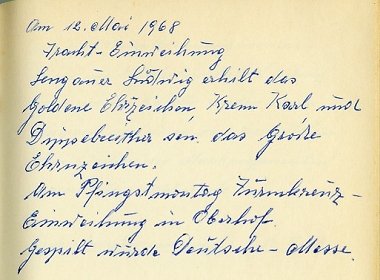 Am 12. Mai 1968
Tracht-Einweihung
Lengauer Ludwig erhilt das
Goldene Ehrzeichen, Krenn Karl und
sen. das Große
Ehrnzeichen.
Am Pfingstmontag Turmkreuz-
Einweihung in Oberhof.
Gespilt wurde Deutsche-Messe.